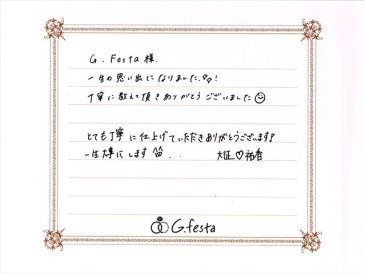 G. Festa 様.
一生の思い出になりました！
丁寧に教えて頂きありがとうございました
とても丁寧に仕上げていただきありがとうございます！
一生大事にします 大征♡祐香
G.festa